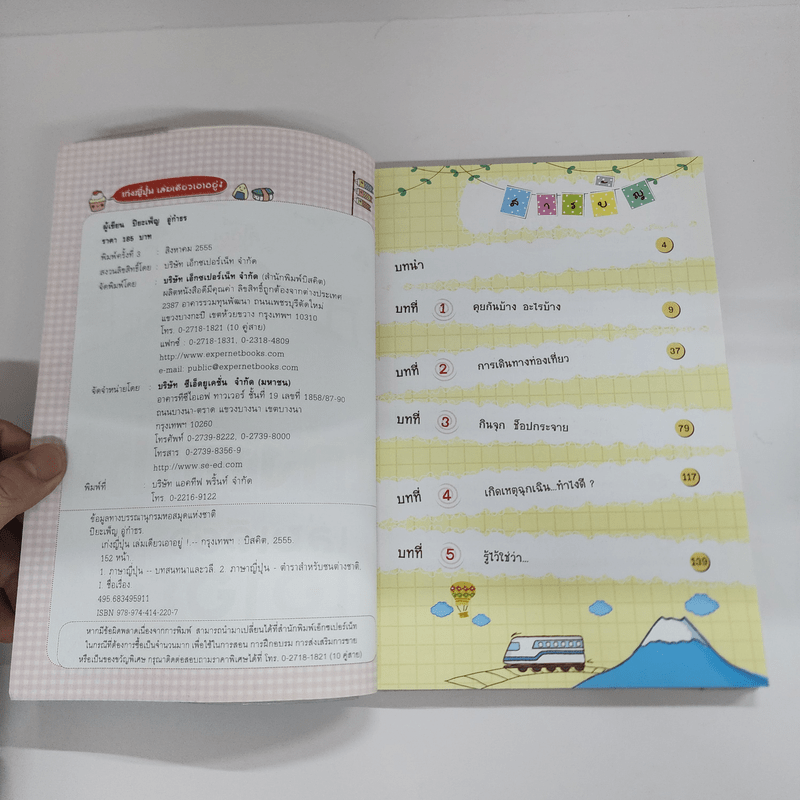 เก่งญี่ปุ่น เล่มเดียวเอาอยู่!
ผู้เขียน ปิยะเพ็ญ อู่กำธร
ราคา 185 บาท
พิมพ์ครั้งที่ 3 : สิงหาคม 2555
สงวนลิขสิทธิ์โดย : บริษัท เอ็กซเปอร์เน็ท จำกัด
จัดพิมพ์โดย : บริษัท เอ็กซเปอร์เน็ท จำกัด (สำนักพิมพ์บิสคิต)
ผลิตหนังสือดีมีคุณค่า ลิขสิทธิ์ถูกต้องจากต่างประเทศ
2387 อาคารรวมทุนพัฒนา ถนนเพชรบุรีตัดใหม่
แขวงบางกะปิ เขตห้วยขวาง กรุงเทพฯ 10310
โทร. 0-2718-1821 (10 คู่สาย)
แฟกซ์ : 0-2718-1831, 0-2318-4809
http://www.expernetbooks.com
e-mail: public@expernetbooks.com
จัดจำหน่ายโดย : บริษัท ซีเอ็ดยูเคชั่น จำกัด (มหาชน)
อาคารทีซีไอเอฟ ทาวเวอร์ ชั้นที่ 19 เลขที่ 1858/87-90
ถนนบางนา-ตราด แขวงบางนา เขตบางนา
กรุงเทพฯ 10260
โทรศัพท์ 0-2739-8222, 0-2739-8000
โทรสาร 0-2739-8356-9
http://www.se-ed.com
พิมพ์ที่ : บริษัท แอคทีฟ พริ้นท์ จำกัด
โทร. 0-2216-9122
ข้อมูลทางบรรณานุกรมหอสมุดแห่งชาติ
ปิยะเพ็ญ อู่กำธร.
เก่งญี่ปุ่น เล่มเดียวเอาอยู่ ! -- กรุงเทพฯ : บิสคิต, 2555.
152 หน้า.
1. ภาษาญี่ปุ่น -- บทสนทนาและวลี. 2. ภาษาญี่ปุ่น - ตำราสำหรับชนต่างชาติ.
I. ชื่อเรื่อง.
495.683495911
ISBN 978-974-414-220-7
หากมีข้อผิดพลาดเนื่องจากการพิมพ์ สามารถนำมาเปลี่ยนได้ที่สำนักพิมพ์เอ็กซเปอร์เน็ท
ในกรณีที่ต้องการซื้อเป็นจำนวนมาก เพื่อใช้ในการสอน การฝึกอบรม การส่งเสริมการขาย
หรือเป็นของขวัญพิเศษ กรุณาติดต่อสอบถามราคาพิเศษได้ที่ โทร. 0-2718-1821 (10 คู่สาย)
สารบัญ
บทนำ 4
บทที่ 1 คุยกันบ้าง อะไรบ้าง 9
บทที่ 2 การเดินทางท่องเที่ยว 37
บทที่ 3 กินจุก ช็อปกระจาย 79
บทที่ 4 เกิดเหตุฉุกเฉิน...ทำไงดี ? 117
บทที่ 5 รู้ไว้ใช่ว่า... 139